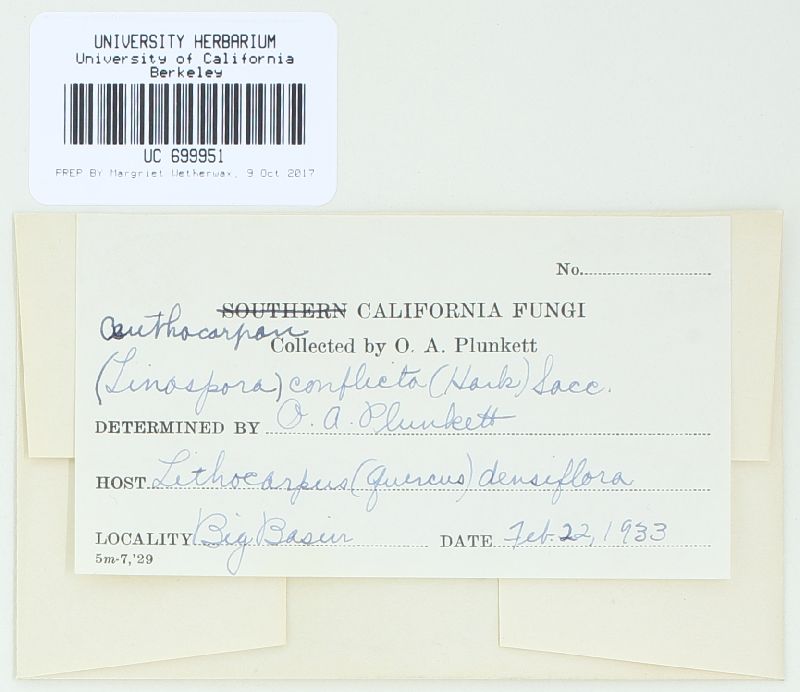 UNIVERSITY HERBARIUM
University of California
Berkeley
UC 699951
PREP BY Margriet Wetherwax, 9 Oct 2017
No.
SOUTHERN CALIFORNIA FUNGI
Collected by O. A. Plunkett
(Linospora) conflicta (Hark) Sacc.
DETERMINED BY O. A. Plunkett
HOST Lithocarpus (Quercus) densiflora
LOCALITY Big Basin DATE Feb. 22, 1933
5m-7,'29